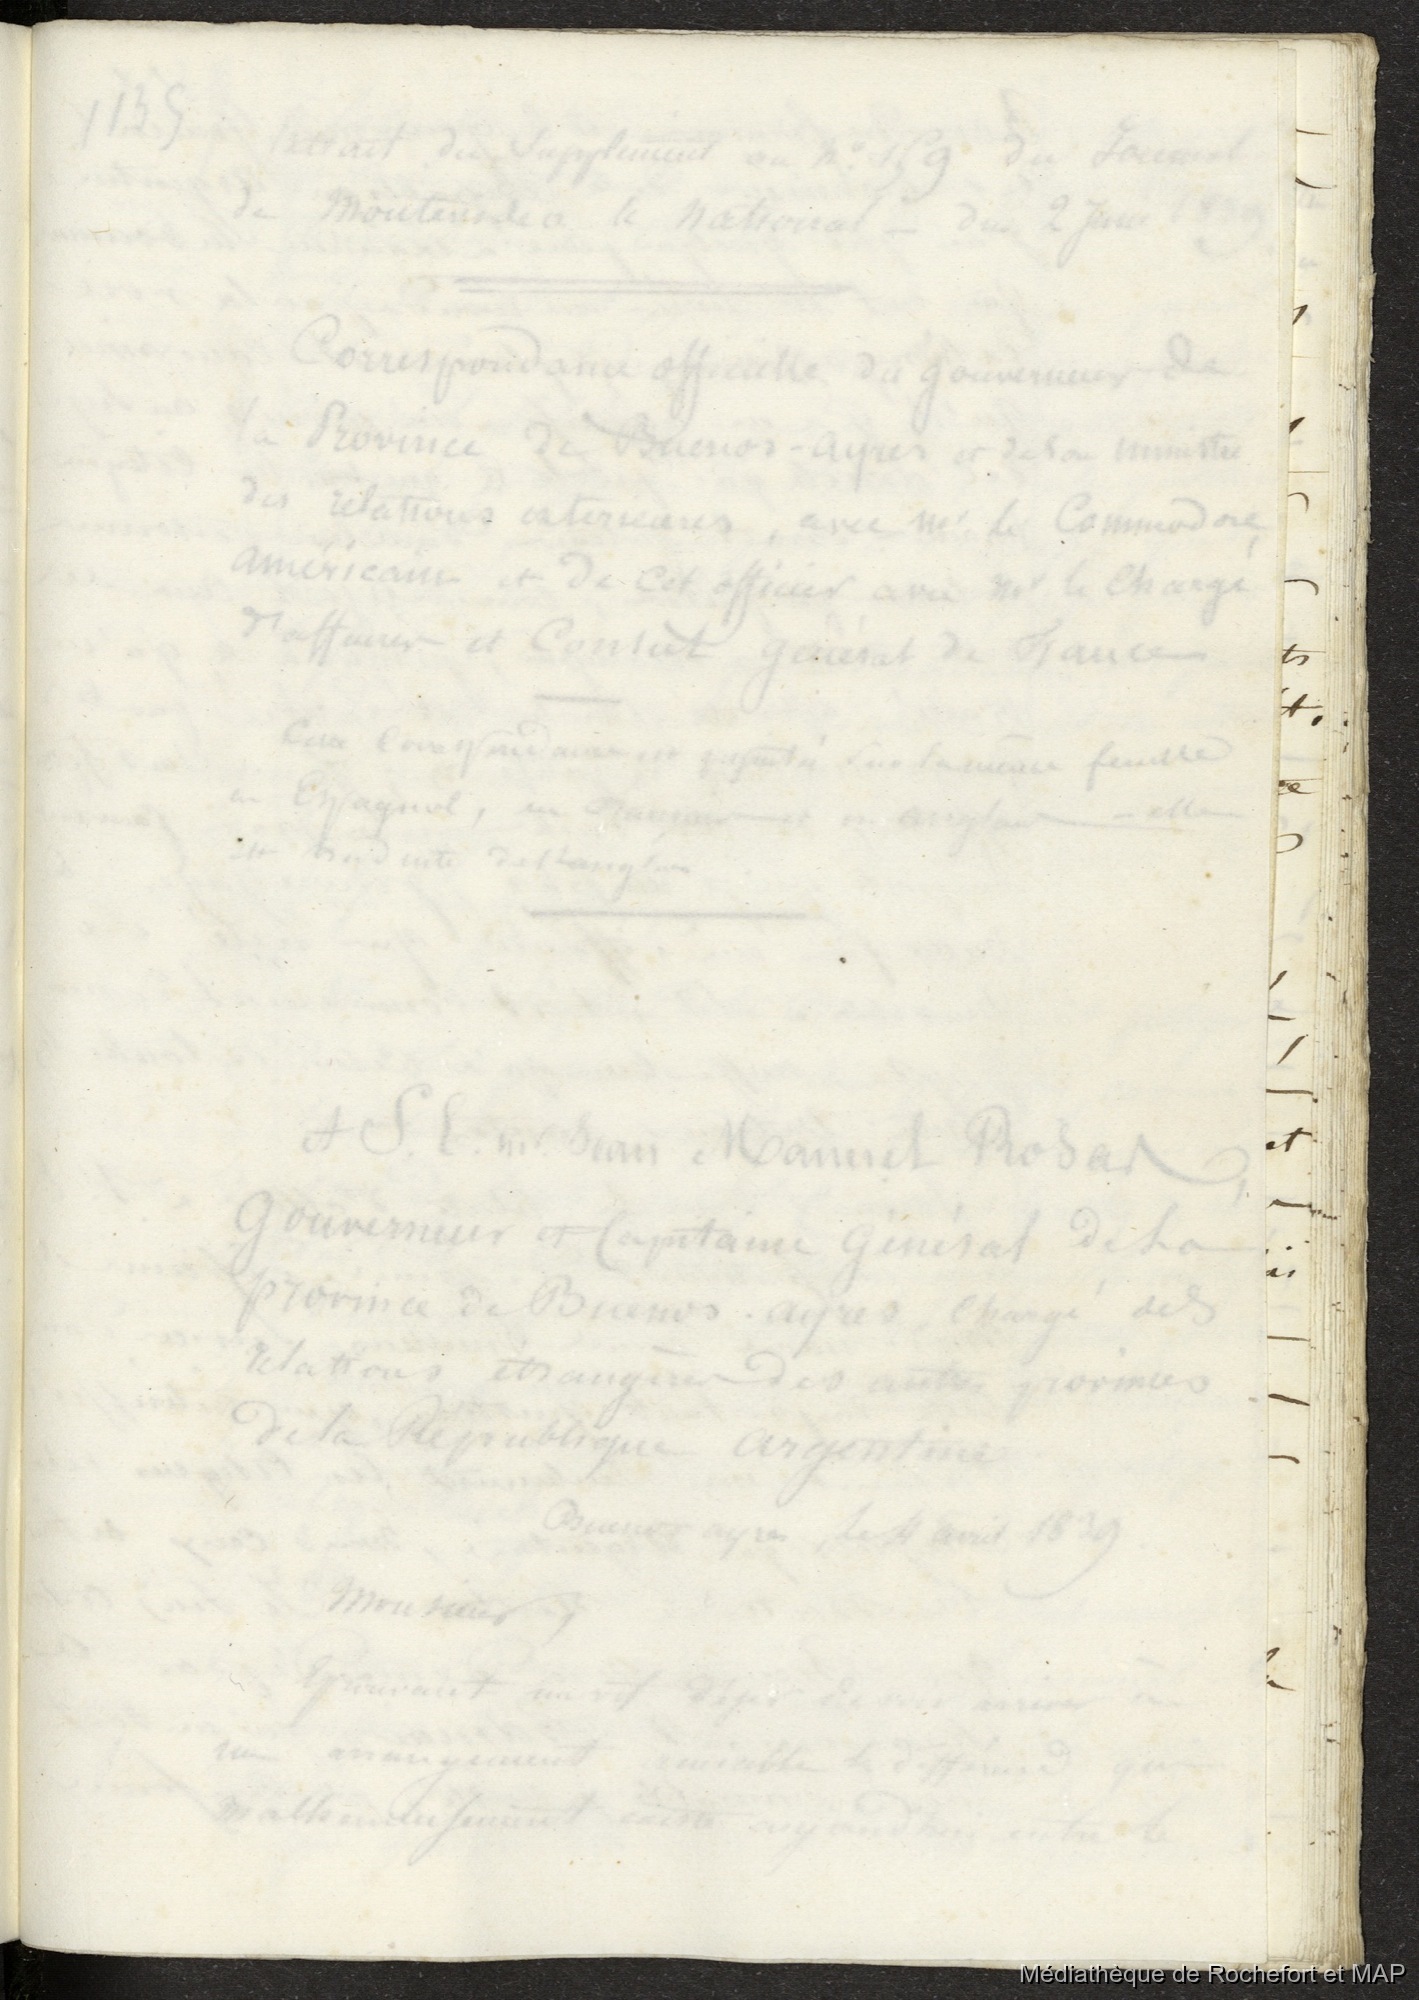 1135
Extrait du Supplément au No. 159 du Journal
de Montevideo le National — du 2 Juin 1839
Correspondance officielle du gouverneur de
la Province de Buenos-ayres et de son ministre
des relations exterieures, avec Mr. le Commodore
américain et de cet officier avec Mr le Chargé
d'affaires et Consul général de France
Cette Correspondance est sur la même feuille
en Espagnol, en et en anglais — elle
est traduite de l'anglais
A S. E. Mr. Juan Manuel Rosas,
Gouverneur et Capitaine Général de la
province de Buenos-ayres, chargé des
relations étrangères des autres provinces
de la République argentine
Buenos ayres, le 4 avril 1839
Monsieur,
Eprouvant un vif désir de voir arriver à
un arrangement amiable le différend qui
malheureusement existe aujourd'hui entre le
Médiathèque de Rochefort et MAP